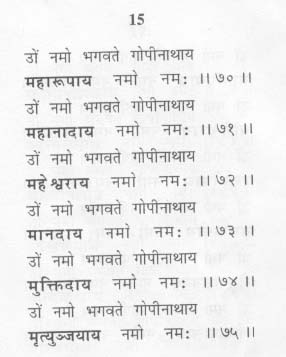 15
डों नमो भगवते गोपीनाथाय
महारूपाय नमो नमः ।। ७० ।।
डों नमो भगवते गोपीनाथाय
महानादाय नमो नमः ।। ७१ ।।
डों नमो भगवते गोपीनाथाय
महेश्वराय नमो नमः ।। ७२ ।।
डों नमो भगवते गोपीनाथाय
मानदाय नमो नमः ।। ७३ ।।
डों नमो भगवते गोपीनाथाय
मुक्तिदाय नमो नमः ।। ७४ ।।
डों नमो भगवते गोपीनाथाय
मृत्युञ्जयाय नमो नमः ।। ७५ ।।